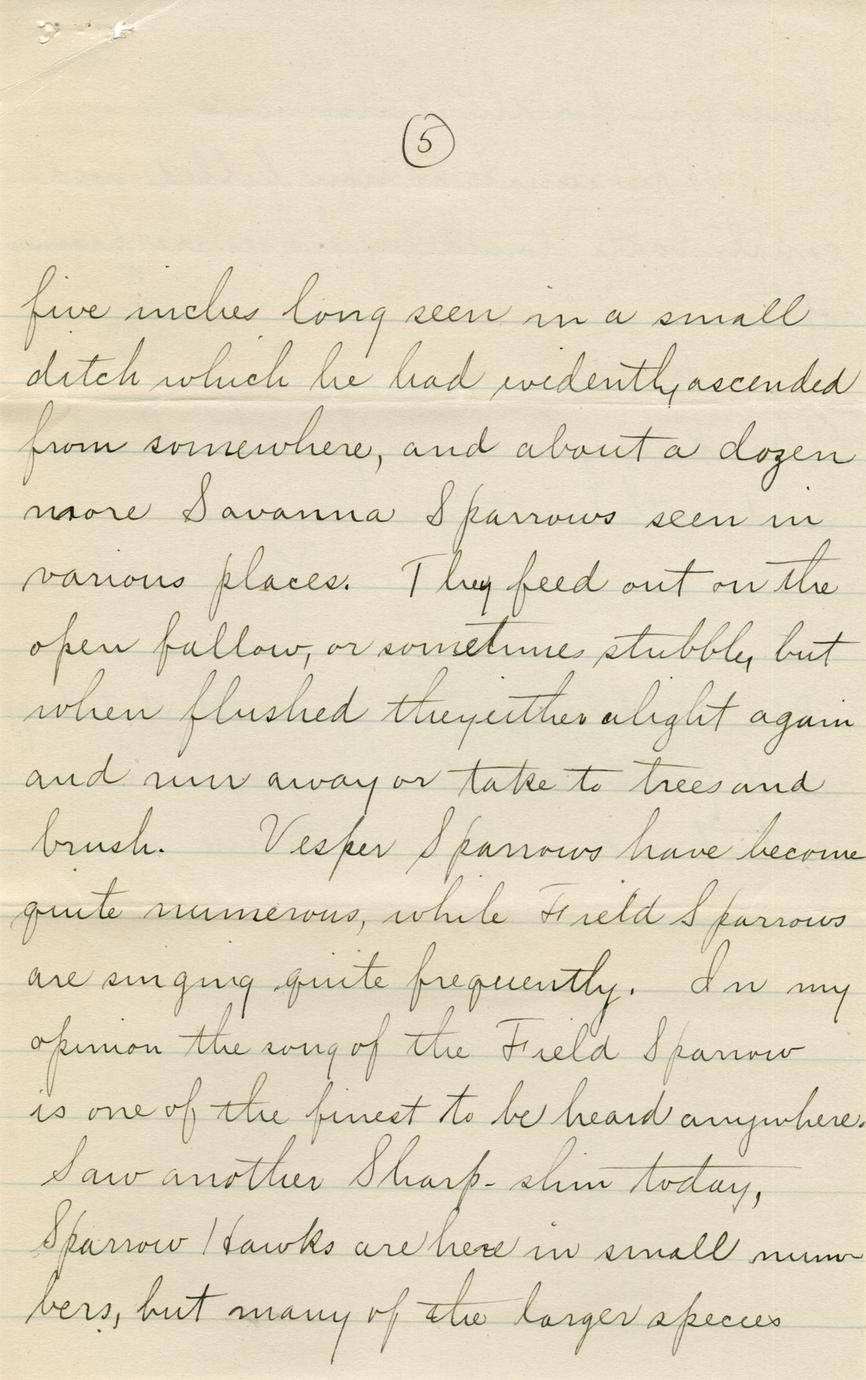 5
five inches long seen in a small
ditch which he had evidently ascended
from somewhere, and about a dozen
more Savanna Sparrows seen in
various places. They feed out on the
open fallow, or sometimes stubble, but
when flushed they either alight again
and run away or take to trees and
brush. Vesper Sparrows have become
quite numerous, while Field Sparrows
are singing quite frequently. In my
opinion the song of the Field Sparrow
is one of the finest to be heard anywhere.
Saw another Sharp-shin today,
Sparrow Hawks are here in small num-
bers, but many of the larger species